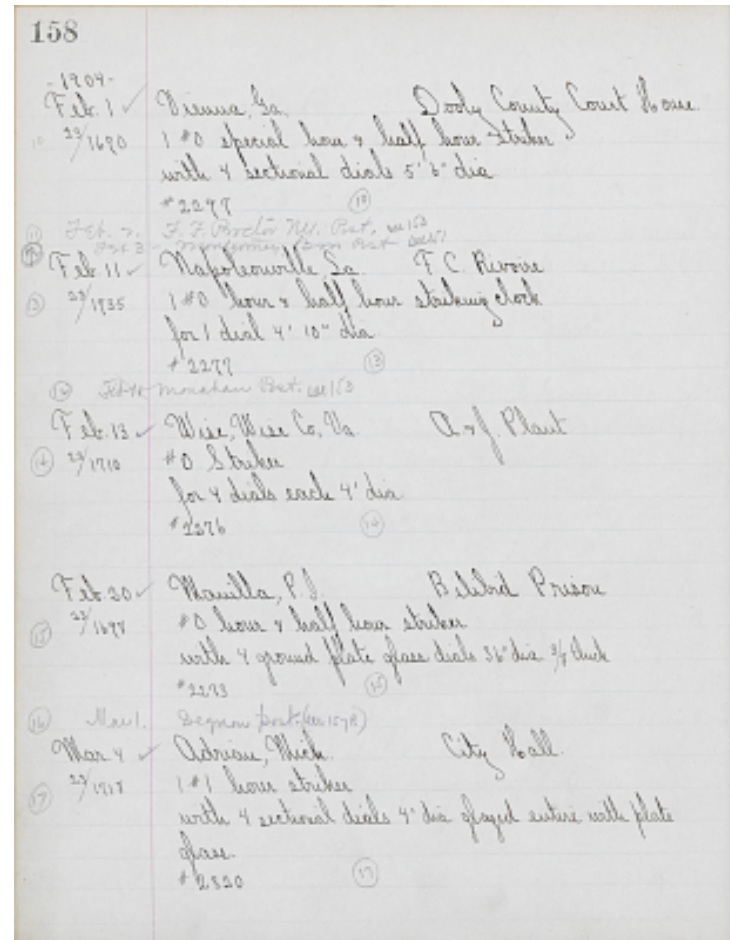 158
-1904-
Feb. 1 ✓ Vienna, Ga. Dooly County Court House
10 23/1690 1 #0 special hour & half hour striker
with 4 sectional dials 5' 6" dia
#2298 (10)
(11) Feb. 2. F. F. Proctor Post. see 153
Montgomery Post see
Feb. 11 ✓ Napoleonville, La. F. C. Rivoire
(13) 23/1735 1 #0 hour & half hour striking clock
for 1 dial 4' 10" dia
#2277 (13)
Monahan Post. see 153
Feb. 13 ✓ Wise, Wise Co, Va. A & J. Plant
(14) 23/1710 #0 Striker
for 4 dials each 4' dia
#2276 (14)
Feb. 20 ✓ Manilla, P.I. Bilibid Prison
(15) 23/1698 #0 hour & half hour striker
with 4 ground plate glass dials 36" dia 3/8 thick
#2293 (15)
(16) Mar 1. Degnon post. (see 157B)
Mar 4 ✓ Adrian, Mich. City Hall.
(17) 23/1718 1 #1 hour striker
with 4 sectional dials 4' dia glazed entire with plate
glass.
#2320 (17)